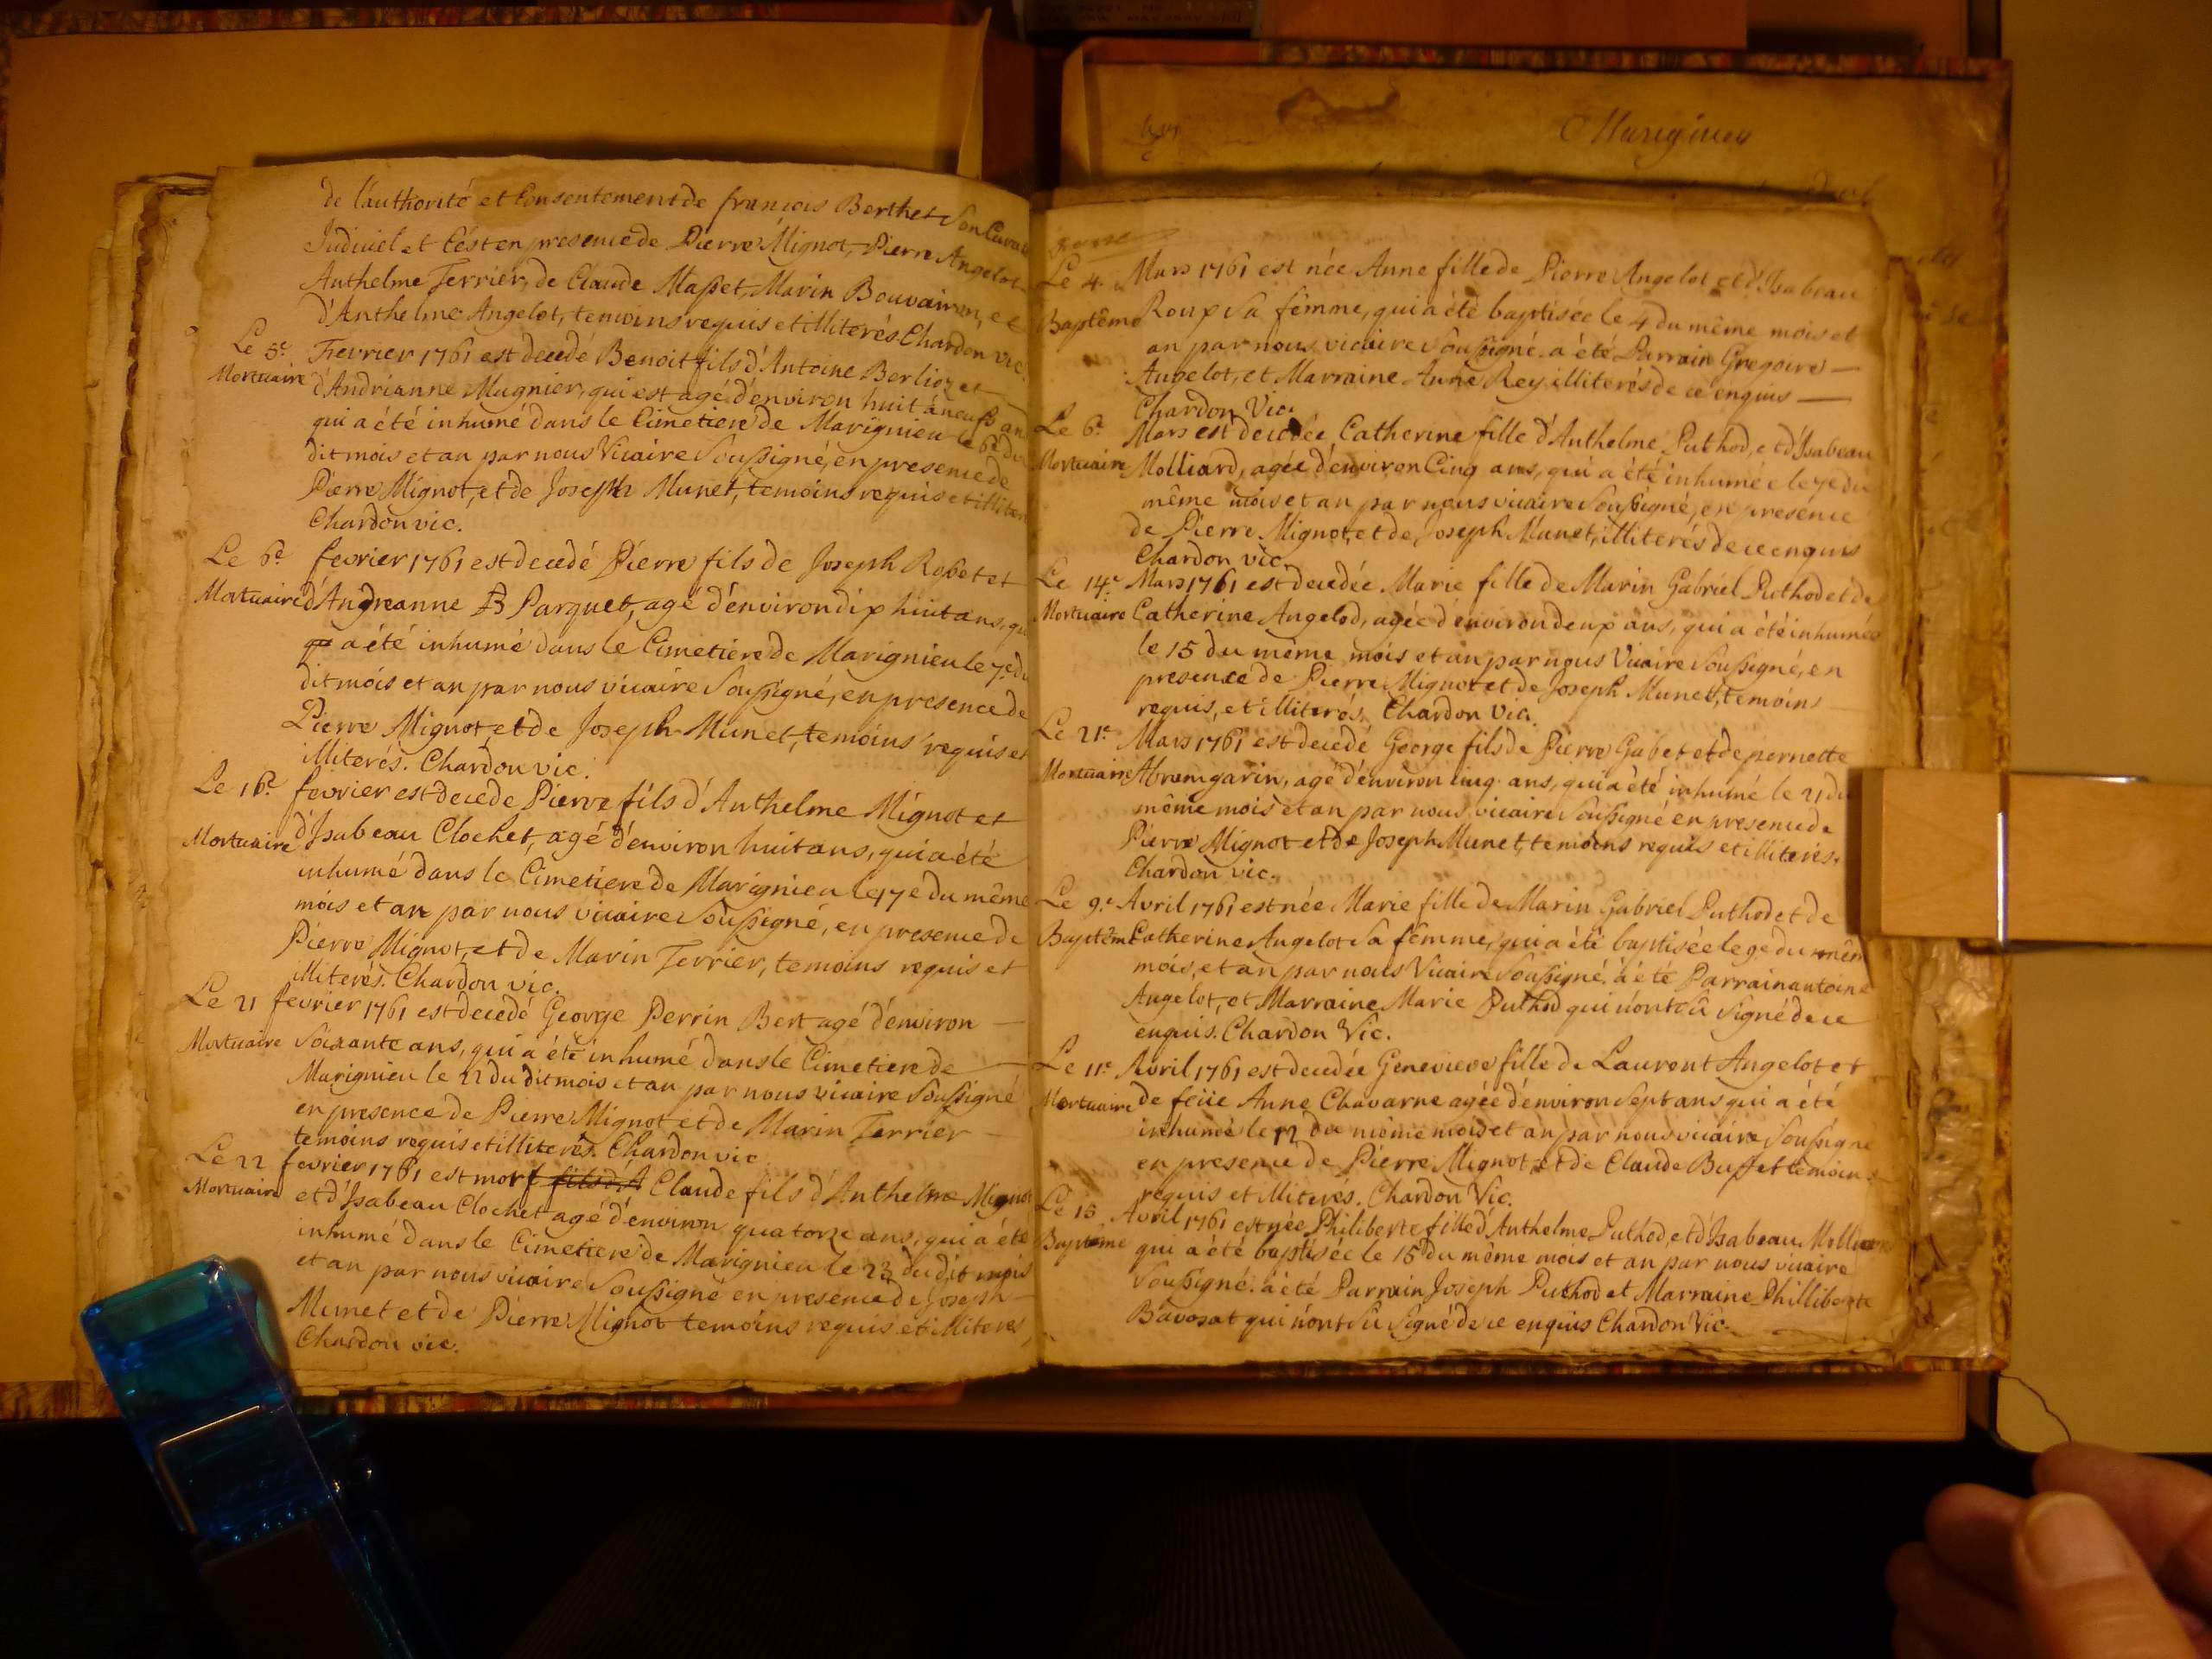 de l'authorité et Consentement de francois Berthet Son Curat
Judiciel et C'est en presence de Pierre Mignot, Pierre Angelot
Anthelme Terrier, de Claude Masset, Marin Bouvairon, et
d'Anthelme Angelot, temoins requis et illiterés Chardon vic.
Le 5e Fevrier 1761 est decedé Benoit fils d'Antoine Berlioz et
Mortuaire d'Andrianne Mugnier, qui est agé d'environ huit á neufs an
qui a été inhumé dans le Cimetiere de Marignieu le 6e du
dit mois et an par nous Vicaire Soussigné, en presence de
Pierre Mignot, et de Joseph Munet, temoins requis et illiter
Chardon vic.
Le 6e fevrier 1761 est decedé Pierre fils de Joseph Robet et
Mortuaire d'Andreanne B Parquet, agé d'environ dix huit ans, qu
qui a été inhumé dans le Cimetiere de Marignieu le 7e du
dit mois et an par nous vicaire Soussigné, en presence de
Pierre Mignot et de Joseph Munet, temoins requis et
illiterés. Chardon vic.
Le 16e fevrier est decede Pierre fils d'Anthelme Mignot et
Mortuaire d'Isabeau Clochet, agé d'environ huit ans, qui a été
inhumé dans le Cimetiere de Marignieu le 17e du même
mois et an par nous vicaire Soussigné, en presence de
Pierre Mignot, et de Marin Terrier, temoins requis et
illiterés. Chardon vic.
Le 21 fevrier 1761 est decedé George Perrin Bert agé d'environ
Mortuaire Soixante ans, qui a été inhumé dans le Cimetiere de
Marignieu le 22 du dit mois et an par nous vicaire Soussigné
en presence de Pierre Mignot et de Marin Terrier
temoins requis et illiterés. Chardon vic.
Le 22 fevrier 1761 est mort fils d'A Claude fils d'Anthelme Mignot
Mortuaire et d'Isabeau Clochet agé d'environ quatorze ans, qui a été
inhumé dans le Cimetiere de Marignieu le 23 du dit mois
et an par nous vicaire Soussigné en presence de Joseph
Munet et de Pierre Mignot temoins requis et illiteres,
Chardon vic.
Marignieu
Le 4 Mars 1761 est née Anne fille de Pierre Angelot et d'Isabeau
Baptême Roux Sa femme, qui a été baptisée le 4 du même mois et
an par nous vicaire Soussigné. a été Parrain Gregoire
Angelot, et Marraine Anne Rey, illiterés de ce enquis
Chardon Vic.
Le 6e Mars est decedée Catherine fille d'Anthelme Puthod, et d'Isabeau
Mortuaire Molliard, agée d'environ Cinq ans, qui a été inhumée le 7e du
même mois et an par nous vicaire Soussigné, en presence
de Pierre Mignot, et de Joseph Munet, illiterés de ce enquis
Chardon vic.
Le 14e Mars 1761 est decedée Marie fille de Marin Gabriel Puthod et de
Mortuaire Catherine Angelod, agée d'environ deux ans, qui a été inhumée
le 15 du même mois et an par nous Vicaire Soussigné, en
presence de Pierre Mignot et de Joseph Munet, temoins
requis, et illiterés. Chardon Vic.
Le 21e Mars 1761 est decedé George fils de Pierre Gabet et de pernette
Mortuaire Abramgarin, agé d'environ cinq ans, qui a été inhumé le 21 du
même mois et an par nous vicaire Soussigné en presence de
Pierre Mignot et de Joseph Munet, temoins requis et illiterés.
Chardon vic.
Le 9e Avril 1761 est née Marie fille de Marin Gabriel Puthod et de
Baptême Catherine Angelot Sa femme, qui a été baptisée le 9e du mêm
mois, et an par nous Vicaire Soussigné. a été Parrain antoine
Angelot, et Marraine Marie Puthod qui n'ont Sû Signé de ce
enquis. Chardon Vic.
Le 11e Avril 1761 est decedée Genevieve fille de Laurent Angelot et
Mortuaire de feüe Anne Chavarne agée d'environ Sept ans qui a été
inhumée le 12 du même mois et an par nous vicaire Soussigné
en presence de Pierre Mignot, et de Claude Busset temoins
requis et illiterés. Chardon Vic.
Le 15 Avril 1761 est née Philiberte fille d'Anthelme Puthod, et d'Isabeau Molliard
Baptême qui a été baptisée le 15 du même mois et an par nous vicaire
Soussigné. a été Parrain Joseph Puthod et Marraine Philliberte
Bavosat qui n'ont Su Signé de ce enquis Chardon Vic.